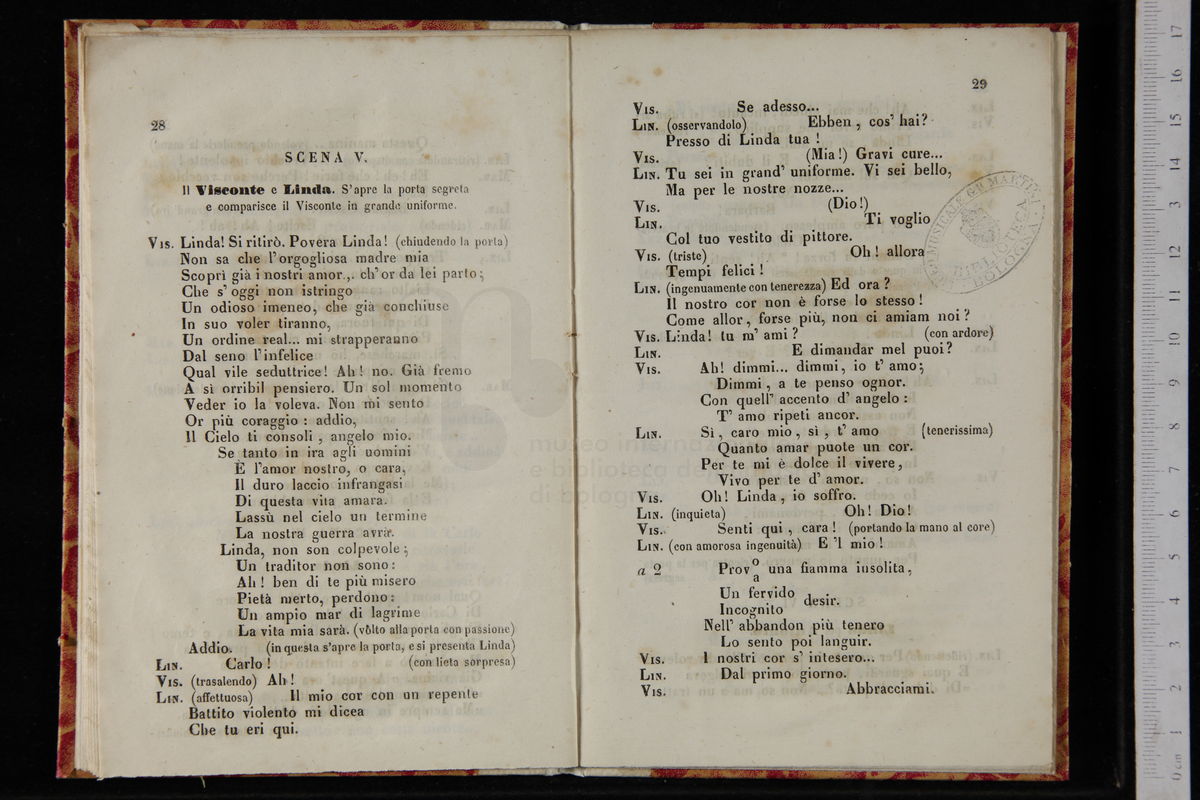 28
SCENA V.
Il Visconte e Linda. S'apre la porta segreta
e comparisce il Visconte in grande uniforme.
Vis. Linda! Si ritirò. Povera Linda! (chiudendo la porta)
Non sa che l'orgogliosa madre mia
Scoprì già i nostri amor.,. ch'or da lei parto;
Che s' oggi non istringo
Un odioso imeneo, che già conchiuse
In suo voler tiranno,
Un ordine real... mi strapperanno
Dal seno l'infelice
Qual vile seduttrice! Ah! no. Già fremo
A sì orribil pensiero. Un sol momento
Veder io la voleva. Non mi sento
Or più coraggio : addio,
Il Cielo ti consoli , angelo mio.
Se tanto in ira agli uomini
È l'amor nostro, o cara,
Il duro laccio infrangasi
Di questa vita amara.
Lassù nel cielo un termine
La nostra guerra avrà.
Linda, non son colpevole;
Un traditor non sono:
Ah! ben di te più misero
Pietà merto, perdono:
Un ampio mar di lagrime
La vita mia sarà. (vôlto alla porta con passione)
Addio. (in questa s'apre la porta, e si presenta Linda)
Lin. Carlo! (con lieta sorpresa)
Vis. (trasalendo) Ah!
Lin. (affettuosa) Il mio cor con un repente
Battito violento mi dicea
Che tu eri qui.
29
Vis. Se adesso...
Lin. (osservandolo) Ebben, cos' hai?
Presso di Linda tua !
Vis. (Mia!) Gravi cure...
Lin. Tu sei in grand' uniforme. Vi sei bello,
Ma per le nostre nozze...
Vis. (Dio!)
Lin. Ti voglio
Col tuo vestito di pittore.
Vis. (triste) Oh! allora
Tempi felici!
Lin. (ingenuamente con tenerezza) Ed ora?
Il nostro cor non è forse lo stesso!
Come allor, forse più, non ci amiam noi?
Vis. Linda! tu m' ami? (con ardore)
Lin. E dimandar mel puoi?
Vis. Ah! dimmi... dimmi, io t' amo;
Dimmi, a te penso ognor.
Con quell' accento d' angelo :
T' amo ripeti ancor.
Lin. Sì, caro mio, sì, t' amo (tenerissima)
Quanto amar puote un cor.
Per te mi è dolce il vivere,
Vivo per te d' amor.
Vis. Oh! Linda, io soffro.
Lin. (inquieta) Oh! Dio!
Vis. Senti qui, cara! (portando la mano al core)
Lin. (con amorosa ingenuità) E 'l mio!
a 2 Prov o a una fiamma insolita,
Un fervido
Incognito desir.
Nell' abbandon più tenero
Lo sento poi languir.
Vis. I nostri cor s' intesero...
Lin. Dal primo giorno.
Vis. Abbracciami.
G. B. MARTINI
BIBLIOTECA
BOLOGNA
museo internaz
e biblioteca de
di bologna